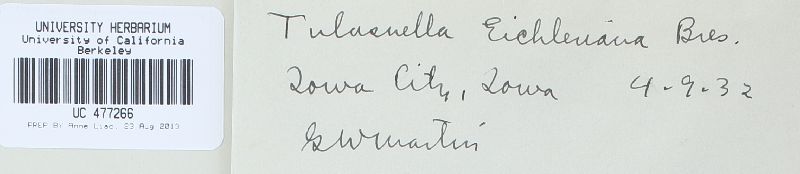 UNIVERSITY HERBARIUM
University of California
Berkeley
UC 477266
PREP BY Anne Liao, 23 Aug 2013
Tulasnella Eichleriana Bres.
Iowa City, Iowa 4-9-32
GWMartin